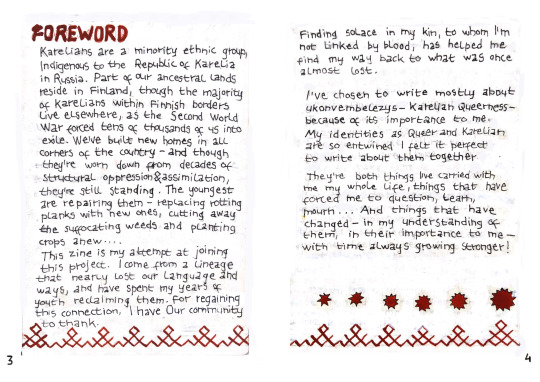 FOREWORD
Karelians are a minority ethnic group,
Indigenous to the Republic of Karelia
in Russia. Part of our ancestral lands
reside in Finland, though the majority
of Karelians within Finnish borders
live elsewhere, as the Second World
War forced tens of thousands of us into
exile. We've built new homes in all
corners of the country - and though
they're worn down from decades of
structural oppression&assimilation,
they're still standing. The youngest
are repairing them - replacing rotting
planks with new ones, cutting away
the suffocating weeds and planting
crops anew....
This zine is my attempt at joining
this project. I come from a lineage
that nearly lost our language and
ways, and have spent my years of
youth reclaiming them. For regaining
this connection, I have Our community
to thank.
3
Finding solace in my kin, to whom I'm
not linked by blood, has helped me
find my way back to what was once
almost lost.
I've chosen to write mostly about
ukonvembelezys - Karelian Queerness -
because of its importance to me.
My identities as Queer and Karelian
are so entwined I felt it perfect
to write about them together.
They're both things I've carried with
me my whole life, things that have
forced me to question, learn,
mourn... And things that have
changed - in my understanding of
them, in their importance to me -
with time always growing stronger!
4